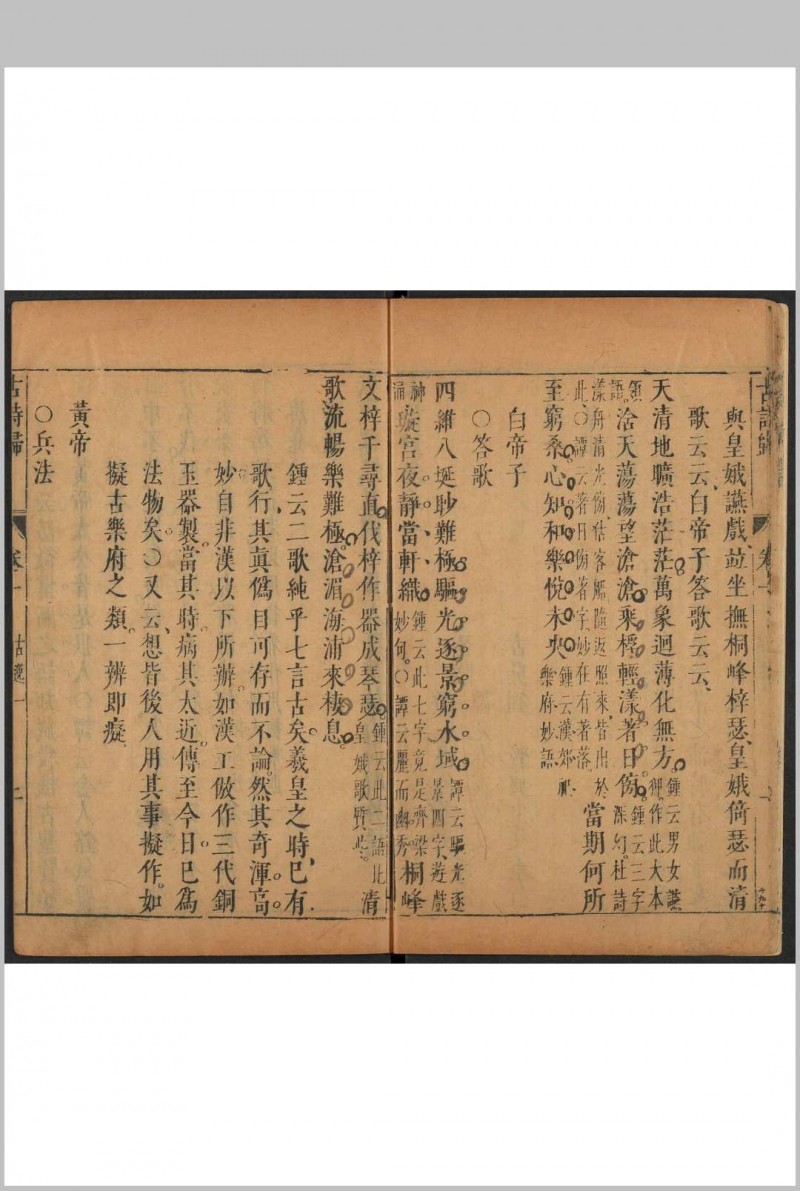 古詩歸 卷一
與皇娥讌戲並坐撫桐峰梓瑟皇娥倚瑟而清
歌云云白帝子答歌云云
天清地曠浩茫茫萬象迴薄化無方鍾云男女讌褻作此大本
領語滄天蕩蕩望滄滄乘桴輕漾著日傍鍾云三字深幻杜詩
漾舟清光傍估客船隨返照來皆出於此○譚云著日傍著字妙在有著落當期何所
至窮桑心知和樂悅未央鍾云漢郊祀樂府妙語
白帝子
○答歌
四維八埏眇難極驅光逐景窮水域譚云驅光逐景四字遊戲
神通璇宮夜靜當軒織鍾云此七字竟是齊梁妙句○譚云麗而幽秀桐峰
文梓千尋直伐梓作器成琴瑟鍾云此二語比皇娥歌質些清
歌流暢樂難極滄湄海浦來棲息
鍾云二歌純乎七言古矣羲皇之時已有
歌行其真偽目可存而不論然其奇渾高
妙自非漢以下所辦如漢工倣作三代銅
玉器製當其時病其太近傳至今日已為
法物矣○又云想皆後人用其事擬作如
擬古樂府之類一辨即癡
黃帝
○兵法
古詩歸 卷一 古逸一 二